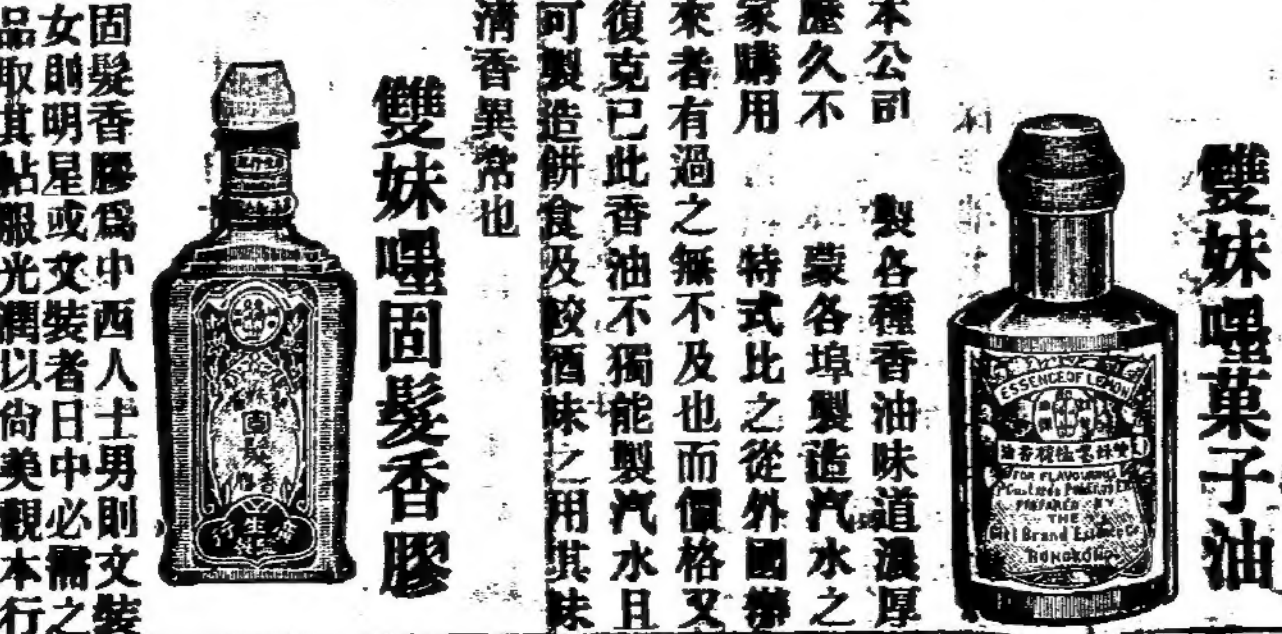 雙妹嘜菓子油
ESSENCE OF LEMON
FOR FLAVOURING
PREPARED BY
THE
HONGKONG
本公司 製各種香油味道濃厚
歷久不 蒙各埠製造汽水之
家購用 特式比之從外國辦
來者有過之無不及也而價格又
復克已此香油不獨能製汽水且
可製造餅食及餃酒味之用其味
清香異常也
雙妹嘜固髮香膠
固髮香
固髮香膠爲中西人士男則文裝
女則明星或文裝者日中必需之
品取其帖服光潤以尚美觀本行